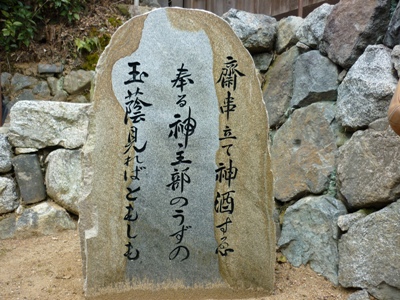 齋串立て神酒すゑ
奉る神主部のうずの
玉蔭見ればともしも